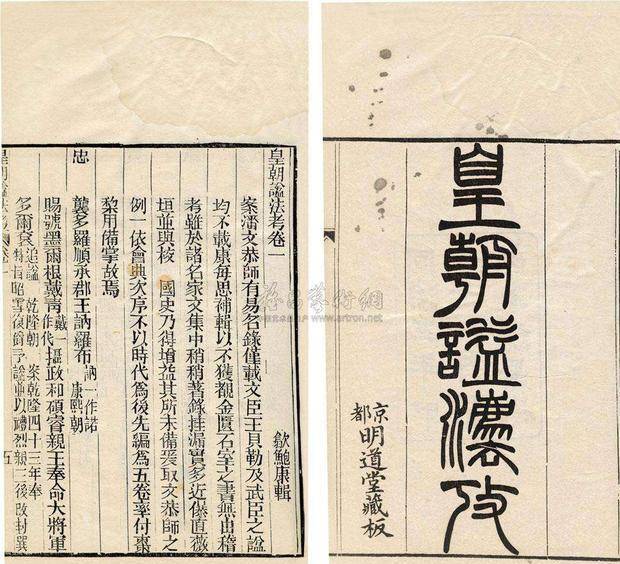 皇朝諡灋攷
京都
明道堂藏板
皇朝謚法考卷一
歙鮑康輯
案潘文恭師有易名錄僅載文臣王貝勒及武臣之謚
均不載康每思補輯以不獲覩金匱石室之書無由稽
者雖於諸名家文集中稍稍著錄挂漏實多近儤直薇
垣並與校 國史乃得增益其所未備爰取文恭師之
例一依會典次序不以時代爲後先編爲五卷率付棗
棃用備掌故焉
忠
襲多羅順承郡王訥羅布 訥一作諾 康熙朝
賜號墨爾根戴青 戴一作代 攝政和碩睿親王奉命大將軍
多爾袞 追謚 乾隆朝 案乾隆四十三年奉
特旨昭雪復爵予謚並以禮烈親王後改封巽
皇朝謚法考 卷一
五
www.artron.net